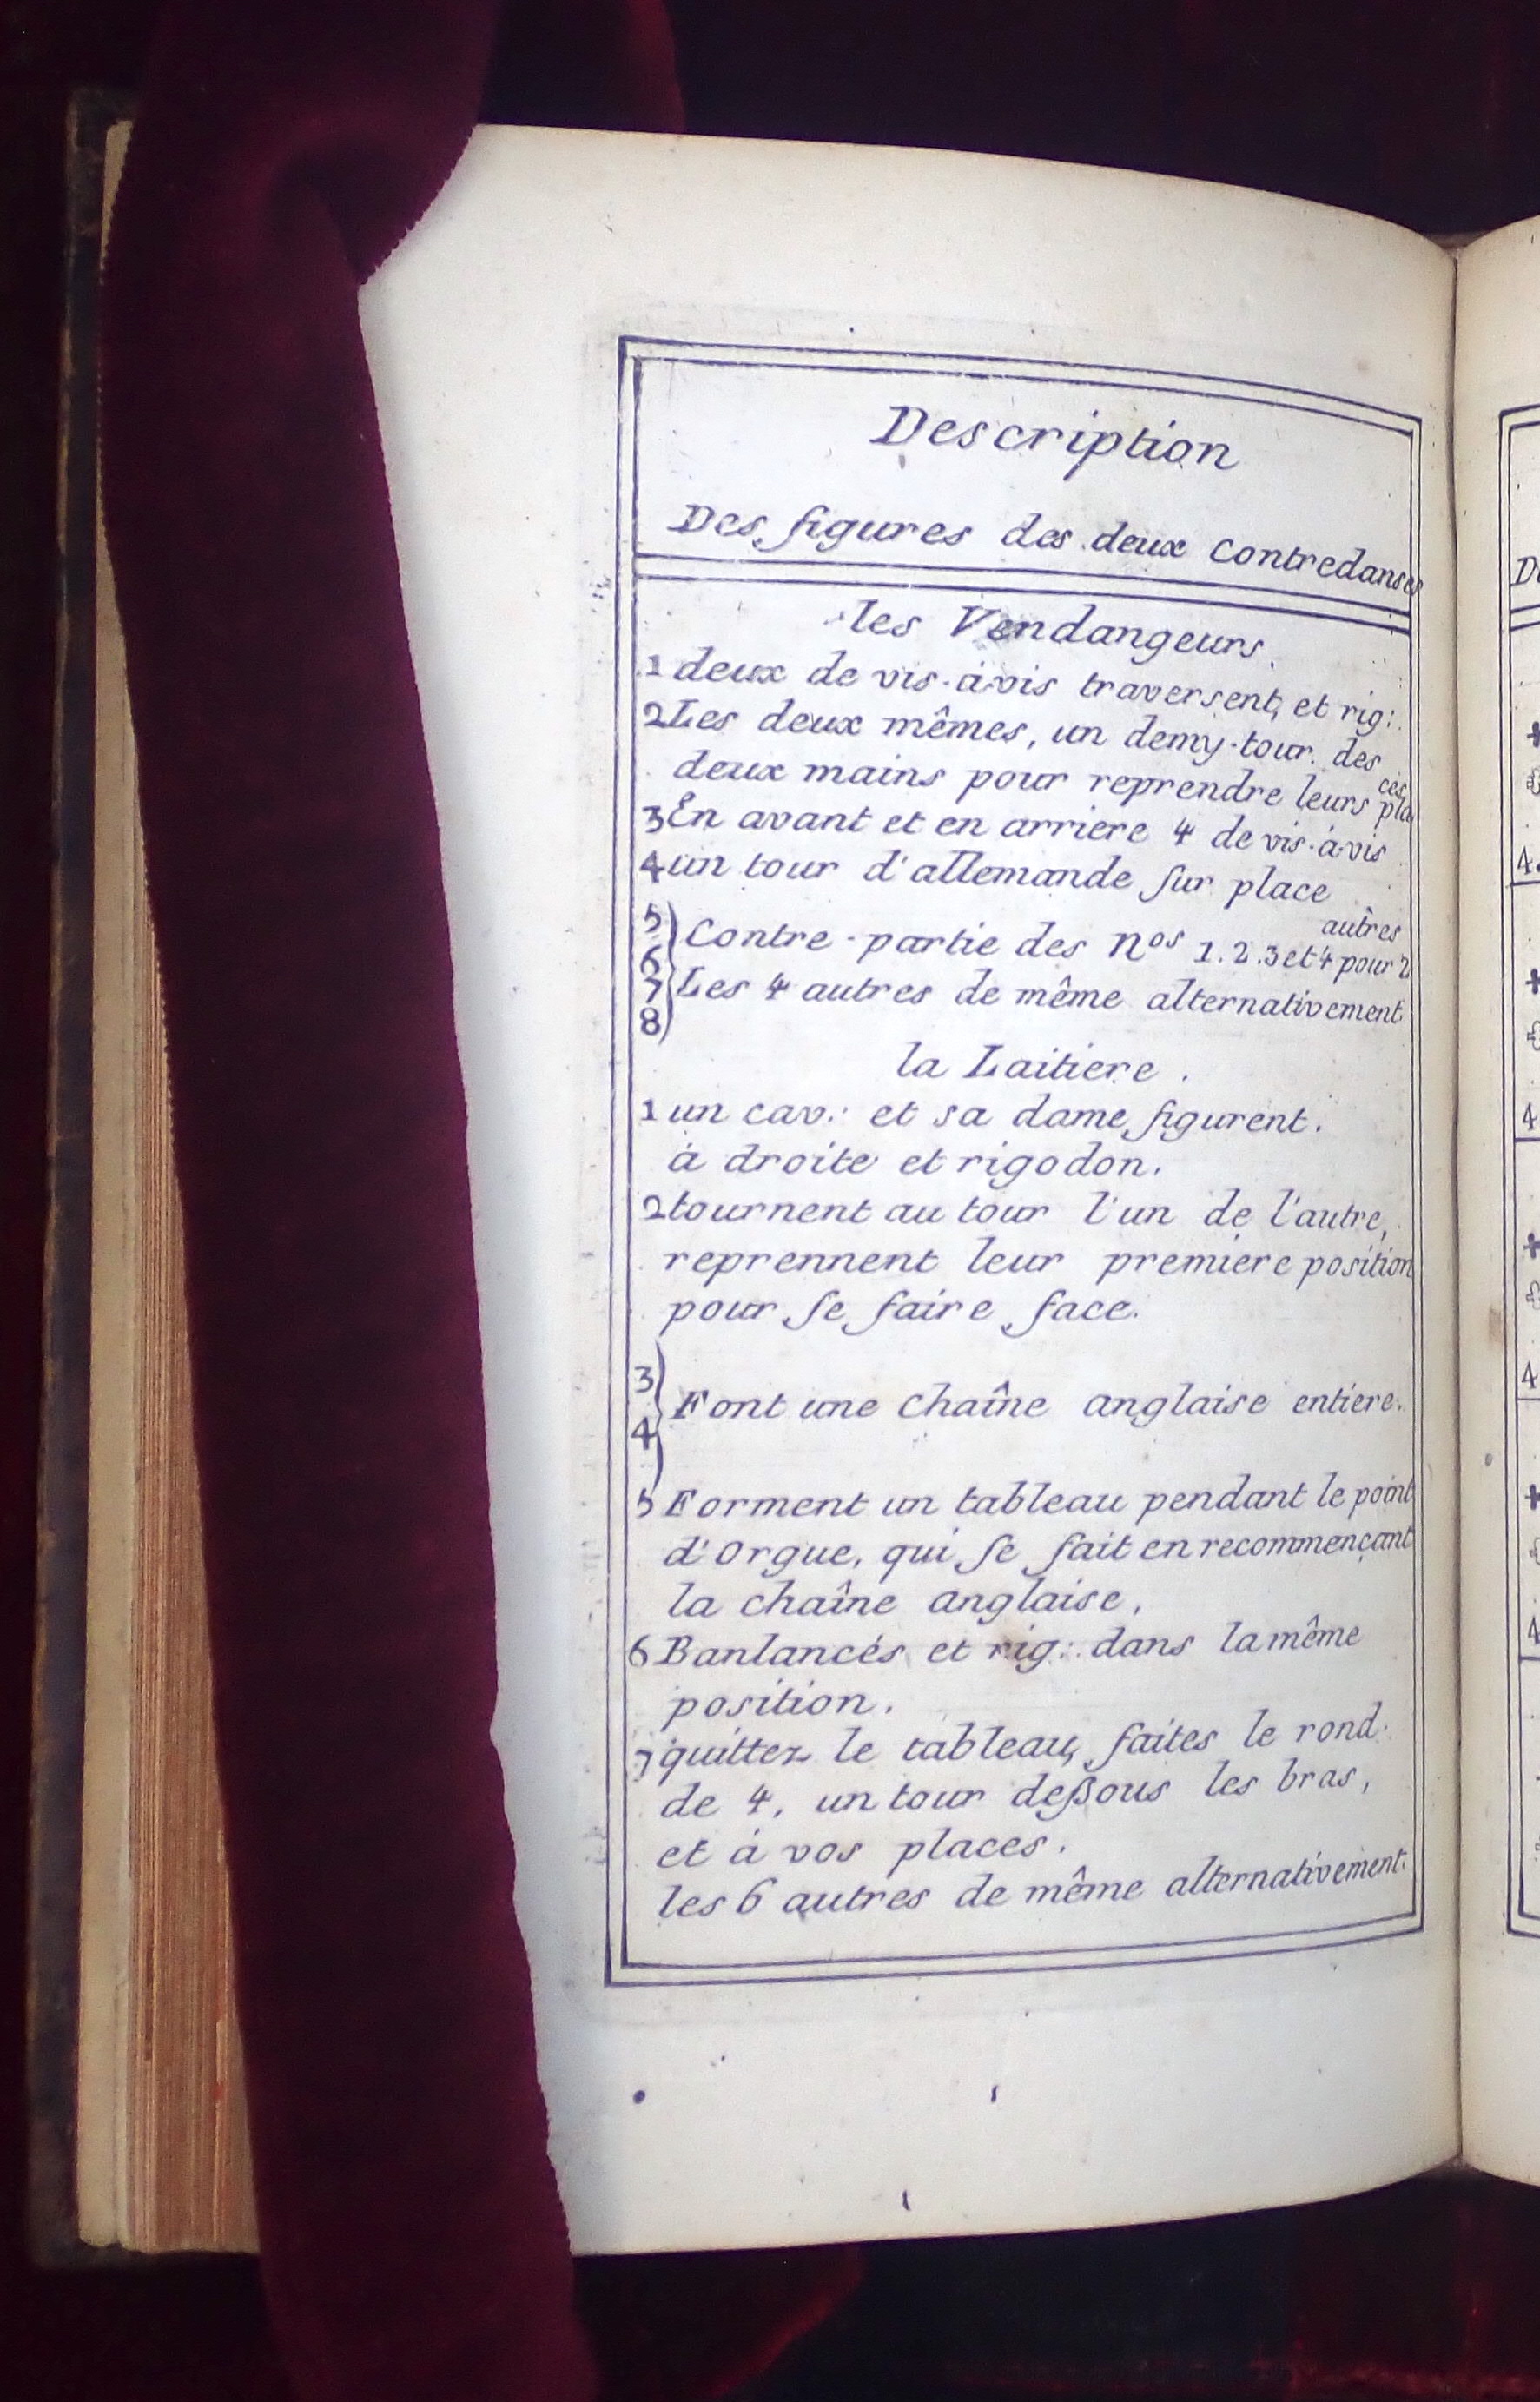 Description
Des figures des deux Contredanses
les Vendangeurs.
1 deux de vis-à-vis traversent, et rig:
2 Les deux mêmes, un demy-tour des
deux mains pour reprendre leurs places
3 En avant et en arriere 4 de vis-à-vis
4 un tour d'allemande sur place
5 6 7 8 Contre-partie des nos 1.2.3 et 4 pour 2 autres
Les 4 autres de même alternativement
la Laitiere.
1 un cav.: et sa dame figurent.
à droite et rigodon.
2 tournent au tour l'un de l'autre,
reprennent leur premiere position
pour se faire face.
3 4 Font une chaîne anglaise entiere.
5 Forment un tableau pendant le point
d'Orgue, qui se fait en recommençant
la chaîne anglaise,
6 Banlancés et rig: dans la même
position.
7 quittez le tableau, faites le rond
de 4, un tour deßous les bras,
et à vos places.
les 6 autres de même alternativement.
D
4
4
4
4